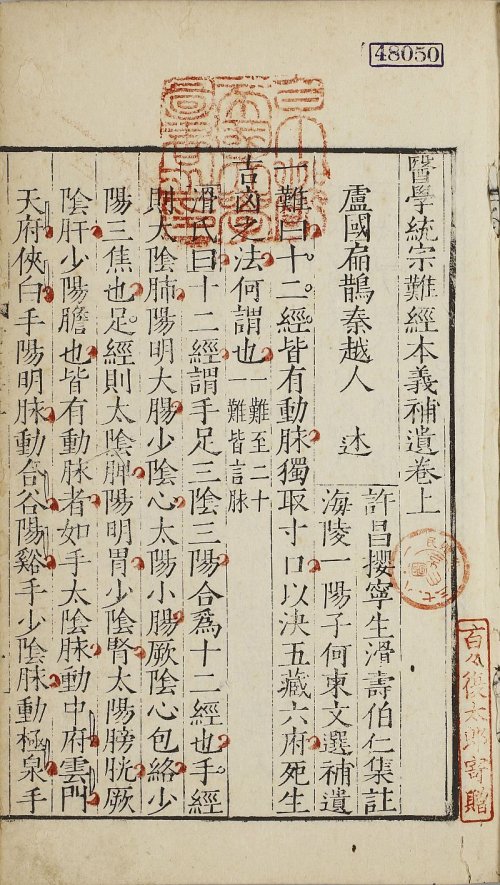 48050
醫學統宗難經本義補遺卷上
盧國扁鵲秦越人 述
許昌攖寧生滑壽伯仁集註
海陵一陽子何柬文選補遺
一難曰十二經皆有動脉獨取寸口以決五藏六府死生
吉凶之法何謂也一難至二十一難皆言脉
滑氏曰十二經謂手足三陰三陽合爲十二經也手經
則太陰肺陽明大腸少陰心太陽小腸厥陰心包絡少
陽三焦也足經則太陰脾陽明胃少陰腎太陽膀胱厥
陰肝少陽膽也皆有動脉者如手太陰脉動中府雲門
天府俠白手陽明脉動合谷陽谿手少陰脉動極泉手
俊太郎寄贈